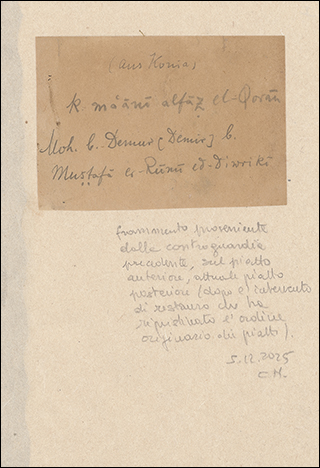 (aus Konia)
k. mâ'ânî alfâẓ el-Qorân
Moh. b. Demur [Demir] b.
Muṣṭafâ er-Rûmî ed-Diwrikî
frammento proveniente
dalla controguardia
precedente, sul piatto
anteriore, attuale piatto
posteriore (dopo l'intervento
di restauro che ha
ripristinato l'ordine
originario dei piatti).
5.12.2025
C M.